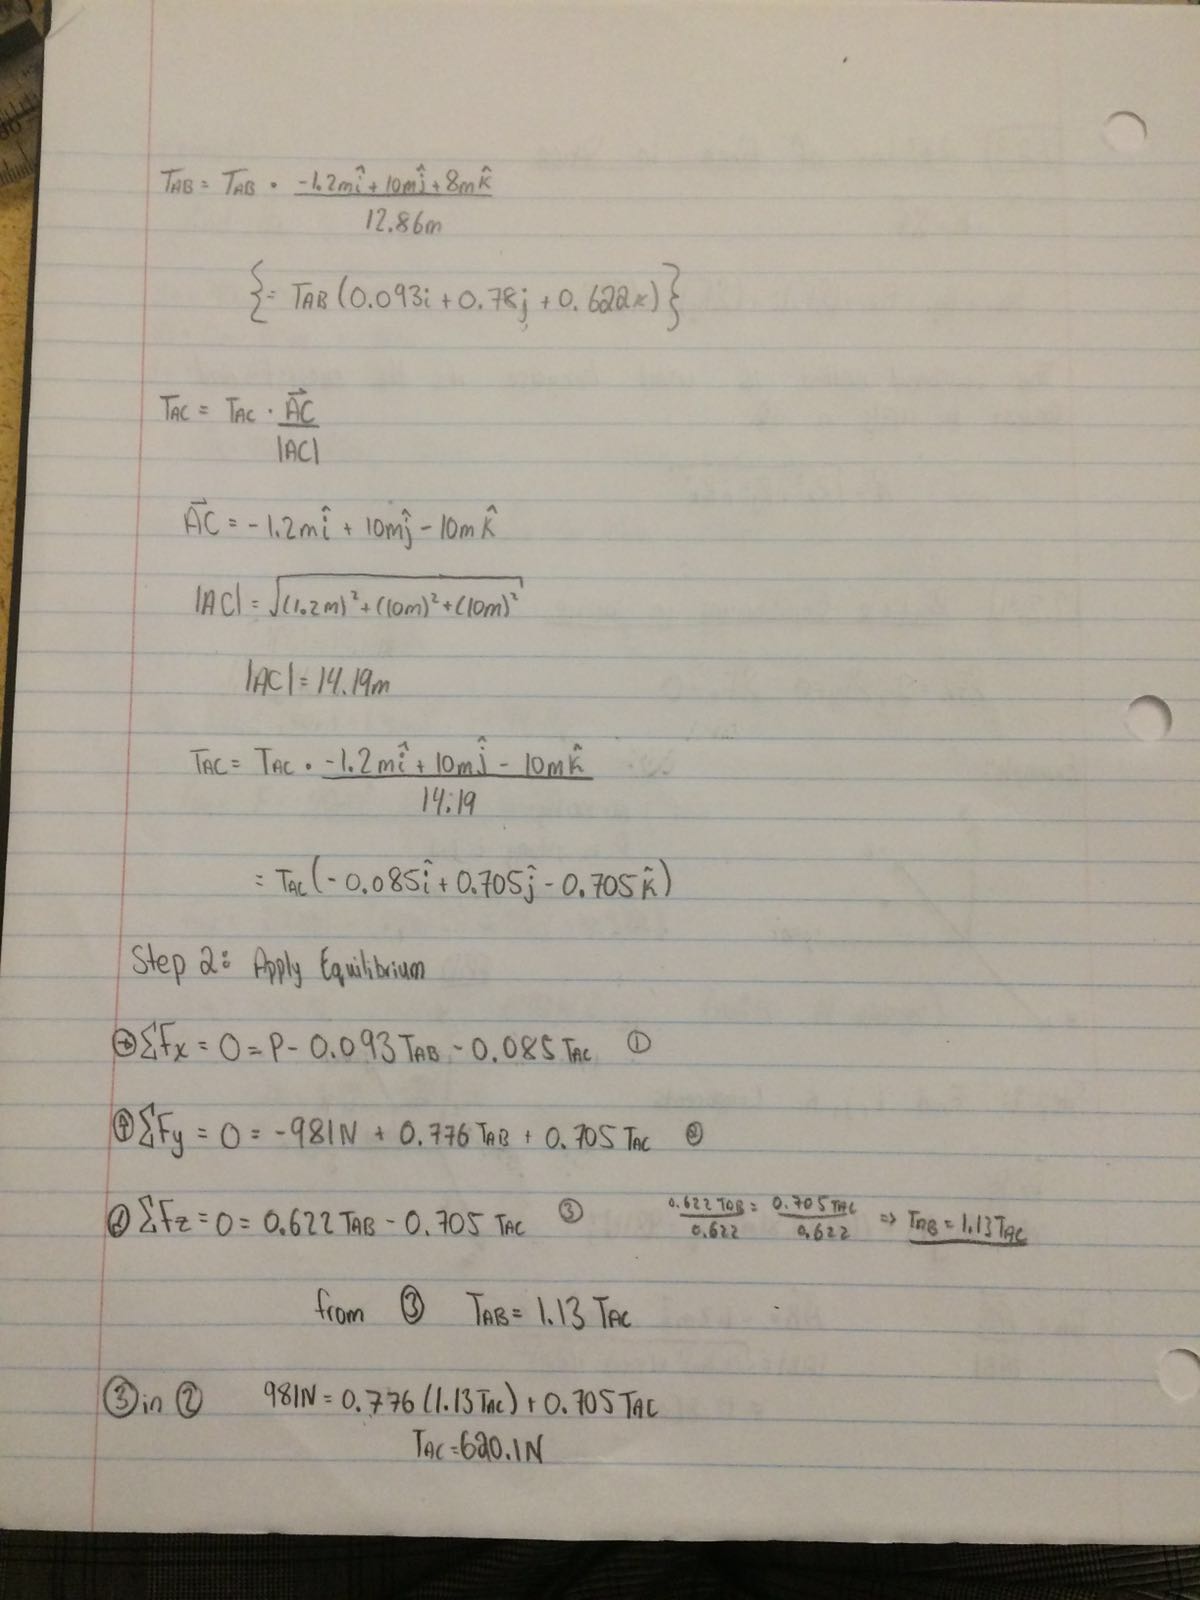 TAB = TAB · -1.2mî + 10mĵ + 8mk̂
12.86m
{= TAB (0.093i + 0.78j + 0.622k)}
TAC = TAC · AC⃗
|AC|
AC⃗ = -1.2mî + 10mĵ - 10mk̂
|AC| = √(1.2m)² + (10m)² + (10m)²
|AC| = 14.19m
TAC = TAC · -1.2mî + 10mĵ - 10mk̂
14.19
= TAC (-0.085î + 0.705ĵ - 0.705k̂)
Step 2: Apply Equilibrium
→ ΣFx = 0 = P - 0.093 TAB - 0.085 TAC ①
↑ ΣFy = 0 = -981N + 0.776 TAB + 0.705 TAC ②
ΣFz = 0 = 0.622 TAB - 0.705 TAC ③ 0.622 TAB/0.622 = 0.705 TAC/0.622 => TAB = 1.13 TAC
from ③ TAB = 1.13 TAC
③ in ② 981N = 0.776 (1.13 TAC) + 0.705 TAC
TAC = 620.1N